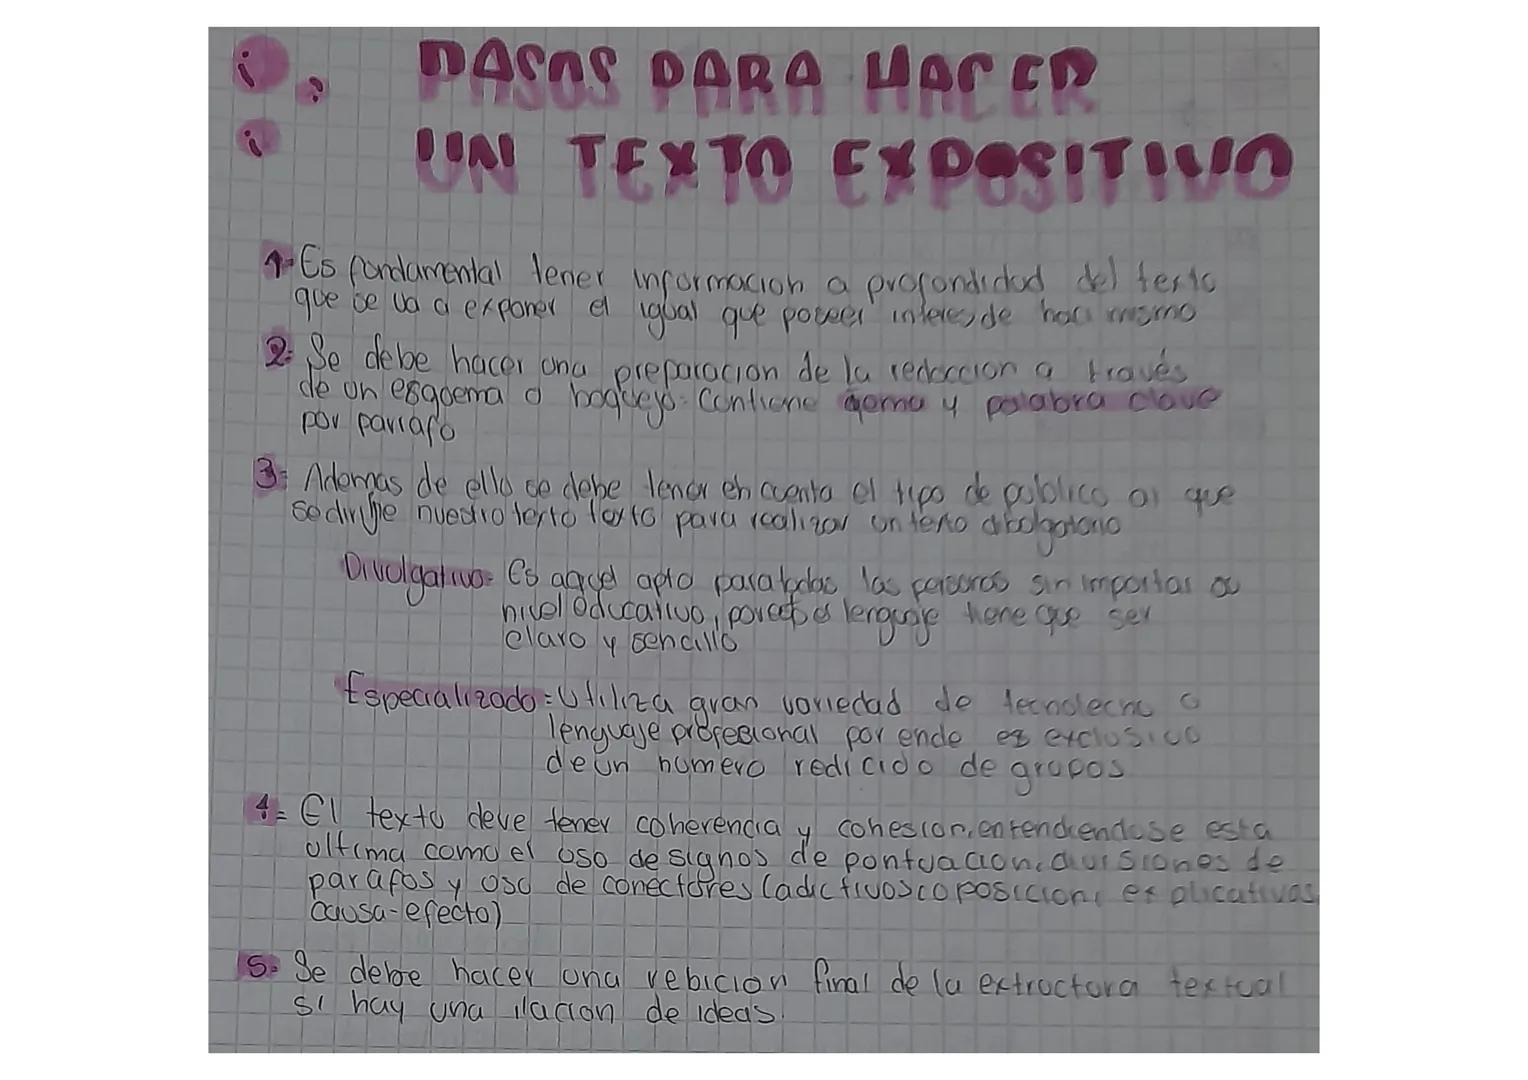 PASOS PARA HACER
UN TEXTO EXPOSITIVO
1- Es fundamental tener informacion a profondidad del texto
que se va a exponer el igual que poseer interes de haci mismo
2- Se debe hacer una preparacion de la redaccion a través
de un esquema o boquejo. Contiene y palabra clave
por parrafo
3= Ademas de ello se debe tener en cuenta el tipo de publico al que
se dirije nuestro texto texto para realizar un texto
Divulgativo= Es aquel apto para todas las personas sin importar su
nivel educativo, por esto el lenguaje tiene que ser
claro y sencillo
Especializado = Utiliza gran variedad de o
lenguaje profesional por ende es exclusivo
de un numero redicido de grupos
4= El texto deve tener coherencia y cohesion, entendiendose esta
ultima como el uso de signos de pontuacion, divisiones de
parafos y uso de conectores (adictivos explicativas
causa-efecto)
5= Se debe hacer una rebicion final de la extructura textual
si hay una ilacion de ideas.